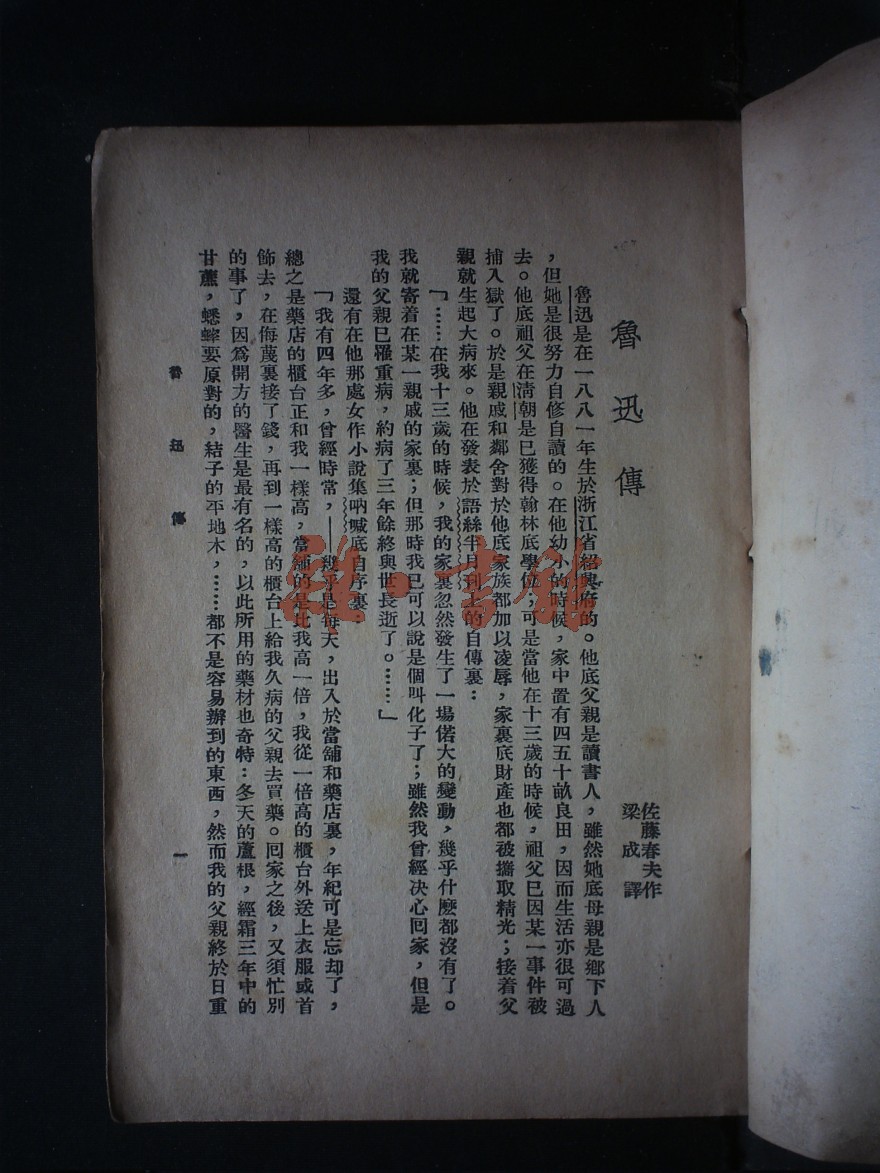 魯迅傳
佐藤春夫作
梁成譯
魯迅是在一八八一年生於浙江省紹興府的。他底父親是讀書人，雖然她底母親是鄉下人
，但她是很努力自修自讀的。在他幼小的時候，家中置有四五十畝良田，因而生活亦很可過
去。他底祖父在清朝是已獲得翰林底學位；可是當他在十三歲的時候，祖父已因某一事件被
捕入獄了。於是親戚和鄰舍對於他底家族都加以凌辱，家裏底財產也都被攫取精光；接着父
親就生起大病來。他在發表於語絲半月刊上的自傳裏：
「……在我十三歲的時候，我的家裏忽然發生了一場偌大的變動，幾乎什麼都沒有了。
我就寄着在某一親戚的家裏；但那時我已可以說是個叫化子了；雖然我曾經決心回家，但是
我的父親已罹重病，約病了三年餘終與世長逝了。……」
還有在他那處女作小說集吶喊底自序裏：
「我有四年多，曾經時常，——幾乎是每天，出入於當舖和藥店裏，年紀可是忘却了，
總之是藥店的櫃台正和我一樣高，當舖的是比我高一倍，我從一倍高的櫃台外送上衣服或首
飾去，在侮蔑裏接了錢，再到一樣高的櫃台上給我久病的父親去買藥。回家之後，又須忙別
的事了，因爲開方的醫生是最有名的，以此所用的藥材也奇特：冬天的蘆根，經霜三年中的
甘蔗，蟋蟀要原對的，結子的平地木，……都不是容易辦到的東西，然而我的父親終於日重
魯迅傳
一
雅·書館